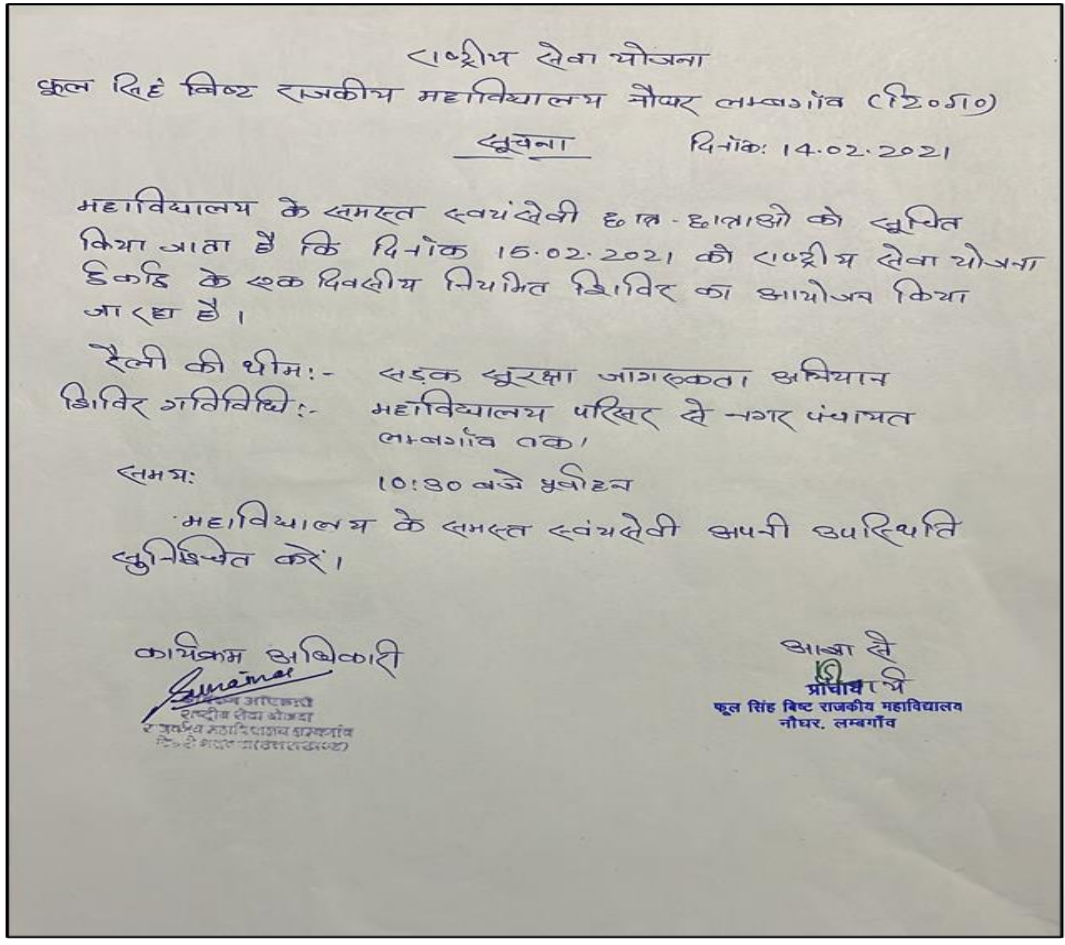 राष्ट्रीय सेवा योजना
फूल सिहं बिष्ट राजकीय महाविद्यालय नौघर लम्बगाँव (टि०ग०)
सूचना दिनाँक: 14.02.2021
महाविद्यालय के समस्त स्वयंसेवी छात्र-छात्राओ को सूचित
किया जाता है कि दिनाँक 15.02.2021 को राष्ट्रीय सेवा योजना
ईकाई के एक दिवसीय नियमित शिविर का आयोजन किया
जा रहा है।
रैली की थीम:- सड़क सुरक्षा जागरूकता अभियान
शिविर गतिविधि:- महाविद्यालय परिसर से नगर पंचायत
लम्बगाँव तक।
समय: 10:30 बजे पूर्वाहन
महाविद्यालय के समस्त स्वंयसेवी अपनी उपस्थिति
सुनिश्चित करें।
कार्यक्रम अधिकारी
कार्यक्रम अधिकारी
राष्ट्रीय सेवा योजना
राजकीय महाविद्यालय लम्बगाँव
आज्ञा से
प्राचार्य
फूल सिंह बिष्ट राजकीय महाविद्यालय
नौघर, लम्बगाँव